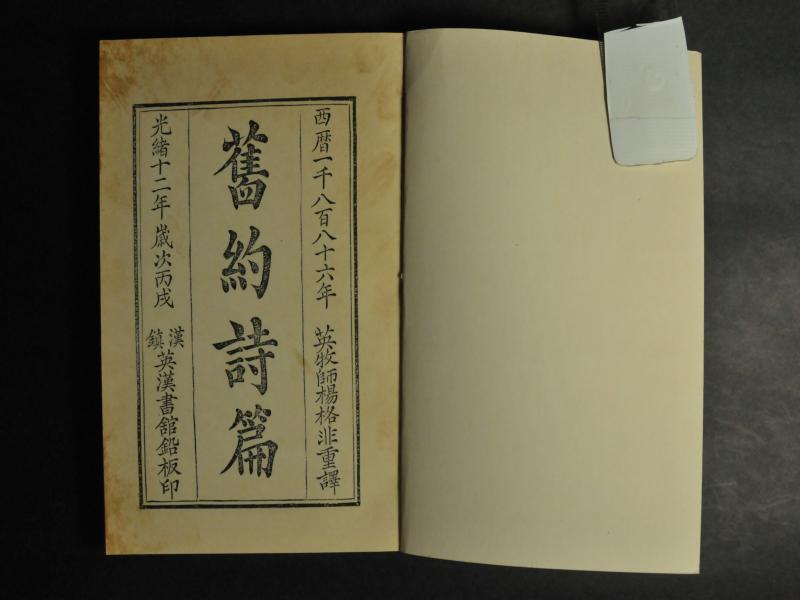 西曆一千八百八十六年 英牧師楊格非重譯
舊約詩篇
光緒十二年 歲次丙戌 漢鎮英漢書館鉛板印